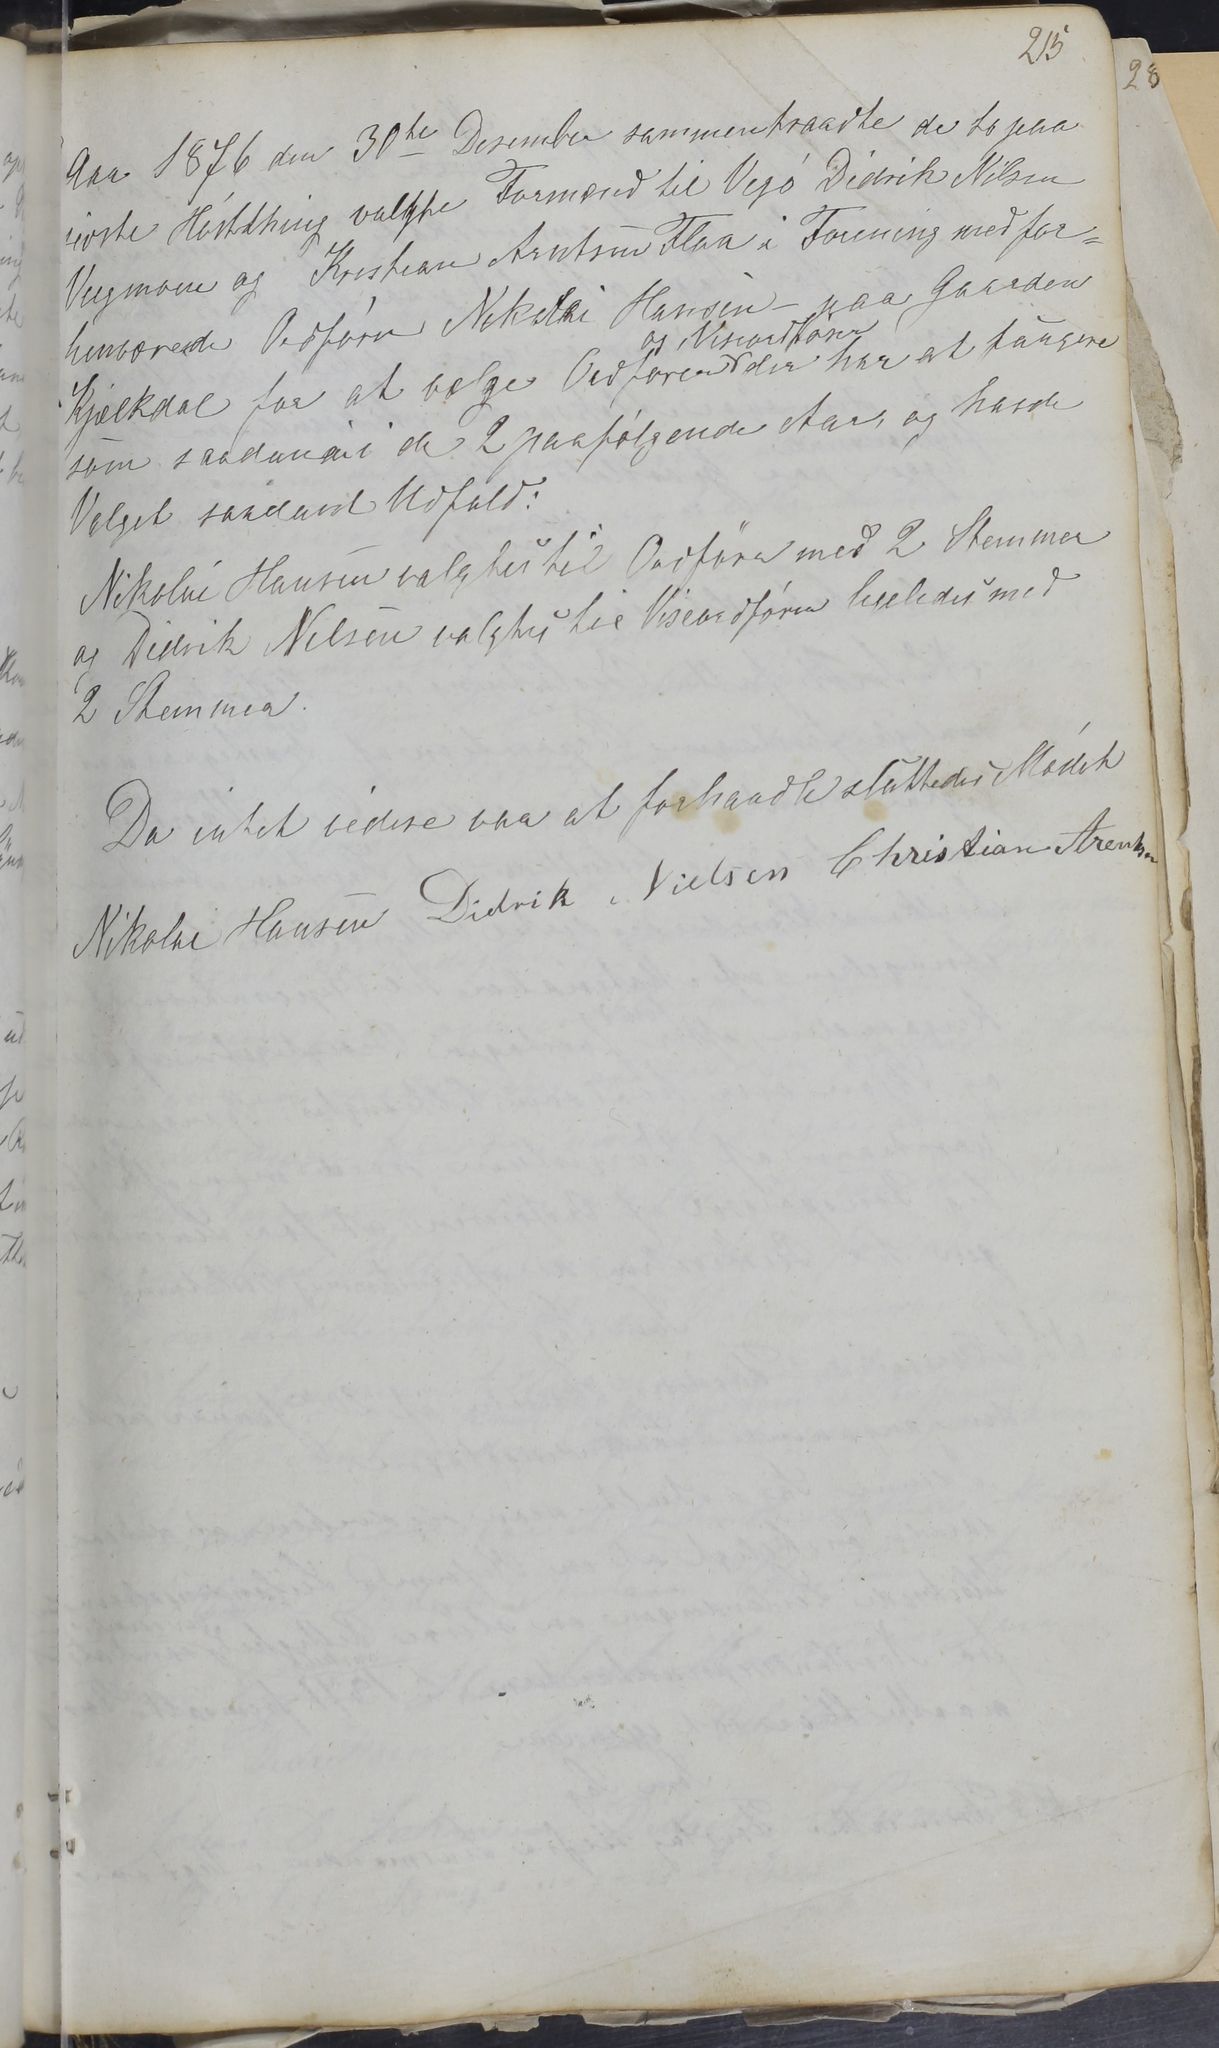 215
28
Aar 1876 den 30te Desember sammentraadte de to paa
siste Hösthing valgte Formænd til Vegö Didrik Nilsen
Vegmoen og Kristian Arntsen Floa i Forening med for=
henværende Ordförer Nikolai Hansen - paa Gaarden
og Viseordförer
Kjælkdal for at vælge Ordförer der har at fungere
som saadan i de 2 paafølgende Aar, og havde
Valget saadant Udfald:
Nikolai Hansen valgtes til Ordförer med 2 Stemmer
og Didrik Nelsen valgtes til Viseordförer ligeledes med
2 Stemmer.
Da intet videre var at forhandle sluttedes Mödet
Nikolai Hansen Didrik Nielsen Christian Arentsen